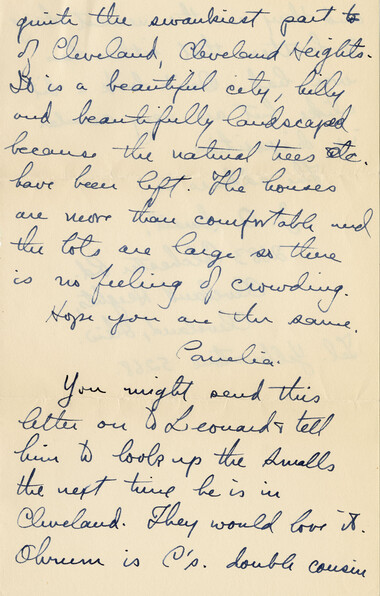 quite the swankiest part to
of Cleveland, Cleveland Heights.
It is a beautiful city, hilly
and beautifully landscaped
because the natural trees etc.
have been left. The houses
are more than comfortable and
the lots are large so there
is no feeling of crowding.
Hope you are the same.
Camelia.
You might send this
letter on to Leonard & tell
him to look up the Smalls
the next time he is in
Cleveland. They would love it.
is C's. double cousin